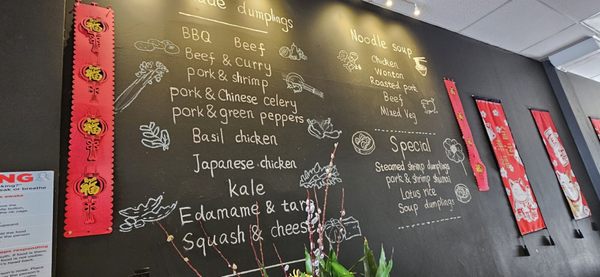 ade dumplings
BBQ Beef
Beef & curry
pork & shrimp
pork & Chinese celery
pork & green peppers
Basil chicken
Japanese chicken
kale
Edamame & tar
Squash & cheese
Noodle soup
Chicken
Wonton
Roasted pork
Beef
Mixed Veg
Special
Steamed shrimp dumplings
pork & shrimp shumai
Lotus rice
Soup dumplings
NG